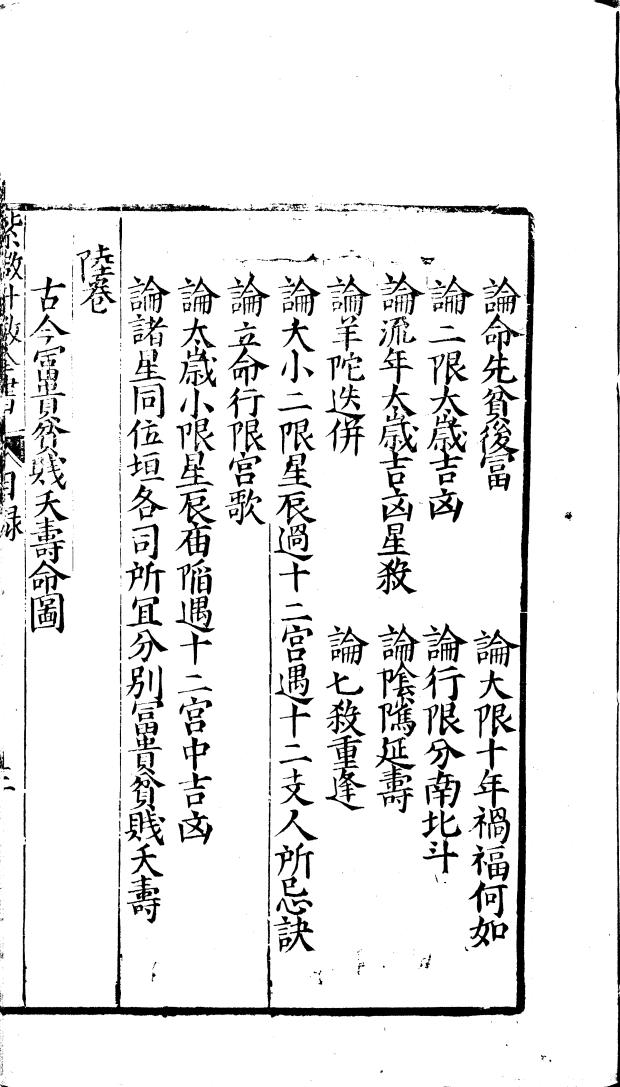 論命先貧後富 論大限十年禍福何如
論二限太歲吉凶 論行限分南北斗
論流年太歲吉凶星殺 論陰隲延壽
論羊陀迭併 論七殺重逢
論大小二限星辰過十二宮遇十二支人所忌訣
論立命行限宮歌
論太歲小限星辰庙陷遇十二宮中吉凶
論諸星同位垣各司所冝分別冨貴貧賤夭壽
陸巻
古今冨貴貧賤夭壽命圖
紫微斗数全書 目録